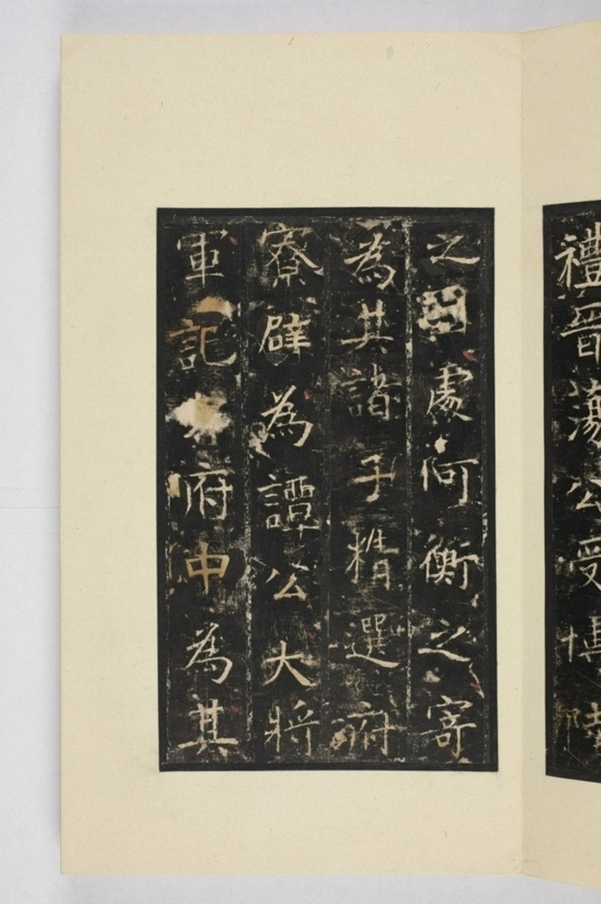 禮晉蕩公受博陸
之圖處阿衡之寄
為其諸子精選府
寮辟為譚公大將
軍記府中為其